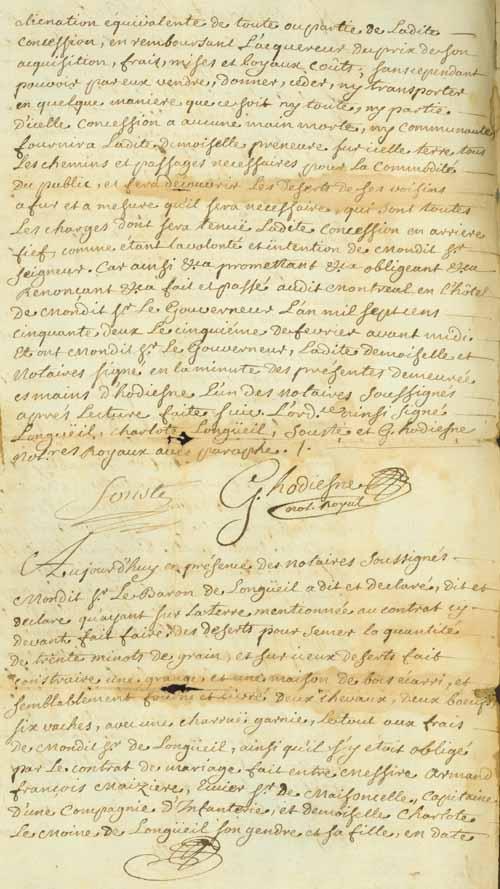 alienation equivalente de toute ou partie de Ladite
Concession, en remboursant L'acquereur du prix de son
acquisition, frait, myses et Loyaux Couts; sans cependant
pouvoir par eux vendre, donner, ceder, ny transporter
en quelque maniere que ce soit ny toute, ny partie
d'icelle Concession a aucune main morte, ny Communauté
fournira Ladite demoiselle preneure sur icelle terre tous
Les chemins et passages necessaires pour La Commodité
du public, et fera decouvrir Les deserts de ses voisins
a fur et a mesure qu'il sera necessaire, qui sont toutes
Les charges dont sera tenuë Ladite Concession en arriere
fief, comme etant La volonté et intention de Mondit Sr.
Seigneur. Car ainsi &ca promettant &ca obligeant &ca
Renonçant &ca fait et passé audit Montreal en L'hôtel
de Mondit Sr. Le Gouverneur L'an mil Sept cens
Cinquante deux Le Cinquiéme de fevrier avant midi.
Et ont Mondit Sr. Le Gouverneur, Ladite demoiselle et
Notaires Signé en La minute des presentes demeurée
es mains d'hodiesne L'un des notaires Soussignés
aprés Lecture faite Suiv. L'ord.ce ainsi Signé
Longüeil, Charlote Longüeil, Souste et G. hodiesne
Not.res Royaux avec paraphe ./.
Souste
G. hodiesne
not. Royal
Aujourd'huy en presence des Notaires Soussignés
Mondit Sr. Le Baron de Longüeil a dit et declaré, dit et
declare qu'ayant sur La terre mentionnée au contrat cy
devant fait faire des deserts pour semer la quantité
de trente minots de grain, et sur iceux deserts fait
construire une grange et une maison de bois ecarri, et
semblablement fourni et livré deux chevaux, deux boeufs
six vaches, avec une charruë garnie, Le tout aux frais
de Mondit Sr. de Longüeil, ainsi qu'il s'y etoit obligé
par Le contrat de mariage fait entre Messire Armand
françois Maizière, Ecuier Sr. de Maisoncelle, Capitaine
d'une Compagnie d'Infanterie, et demoiselle Charlote
Le Moine de Longüeil son gendre et sa fille, en date